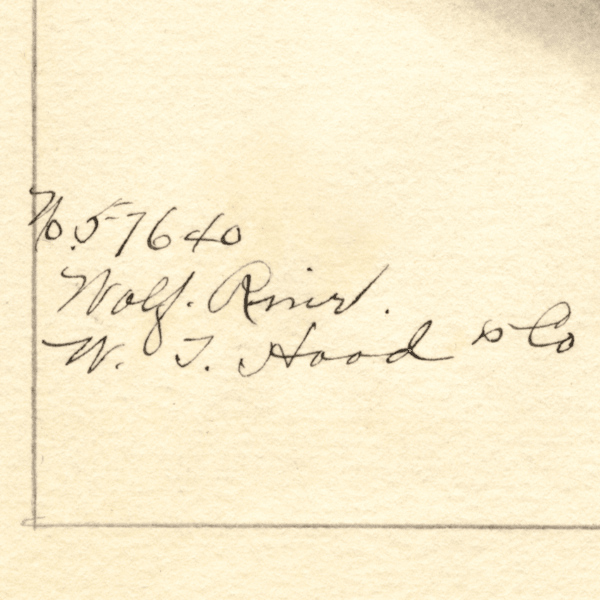 No. 57640
Wolf. River.
W. T. Hood & Co